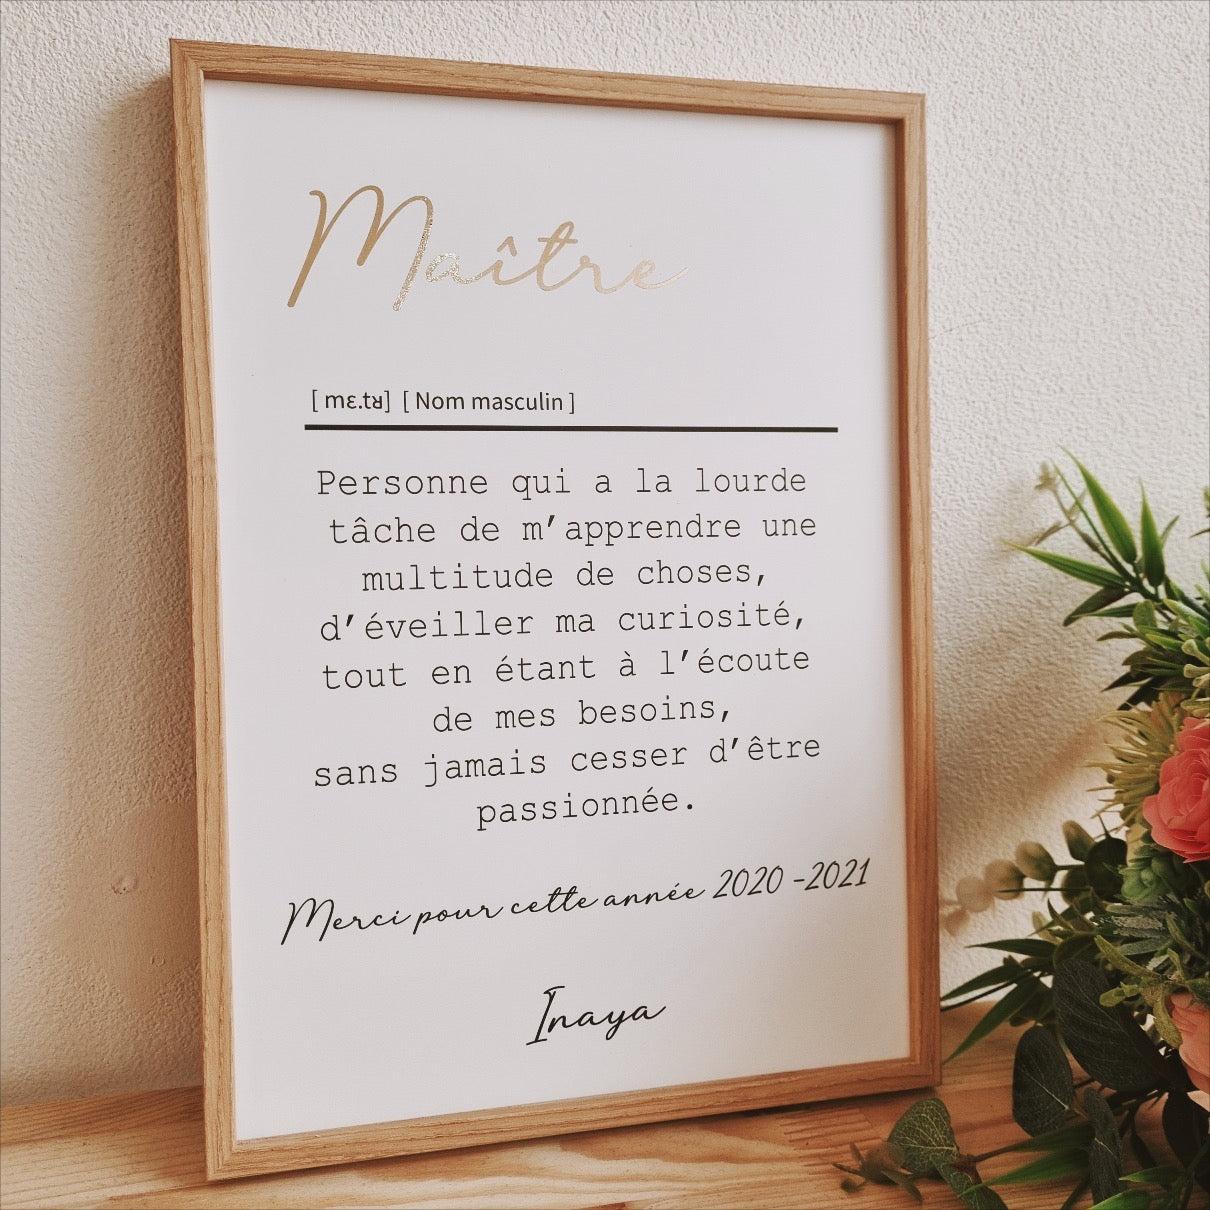 Maître
[ mɛ.tʁ] [ Nom masculin ]
Personne qui a la lourde
tâche de m’apprendre une
multitude de choses,
d’éveiller ma curiosité,
tout en étant à l’écoute
de mes besoins,
sans jamais cesser d’être
passionnée.
Merci pour cette année 2020 -2021
Inaya